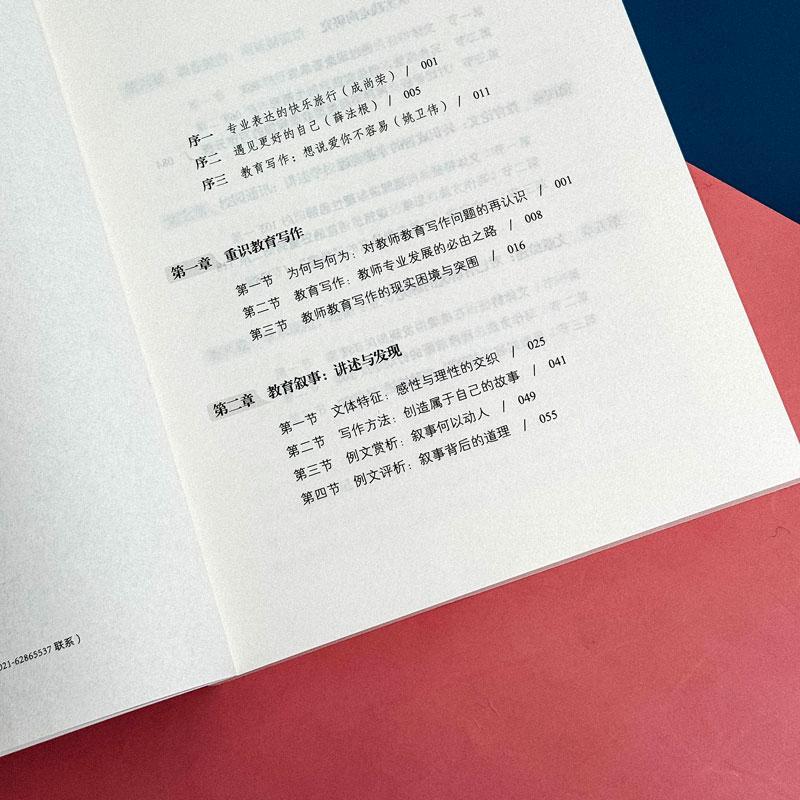 021-62865537 联系）
序一 专业表达的快乐旅行（成尚荣） / 001
序二 遇见更好的自己（薛法根） / 005
序三 教育写作：想说爱你不容易（姚卫伟） / 011
第一章 重识教育写作
第一节 为何与何为：对教师教育写作问题的再认识 / 001
第二节 教育写作：教师专业发展的必由之路 / 008
第三节 教师教育写作的现实困境与突围 / 016
第二章 教育叙事：讲述与发现
第一节 文体特征：感性与理性的交织 / 025
第二节 写作方法：创造属于自己的故事 / 041
第三节 例文赏析：叙事何以动人 / 049
第四节 例文评析：叙事背后的道理 / 055